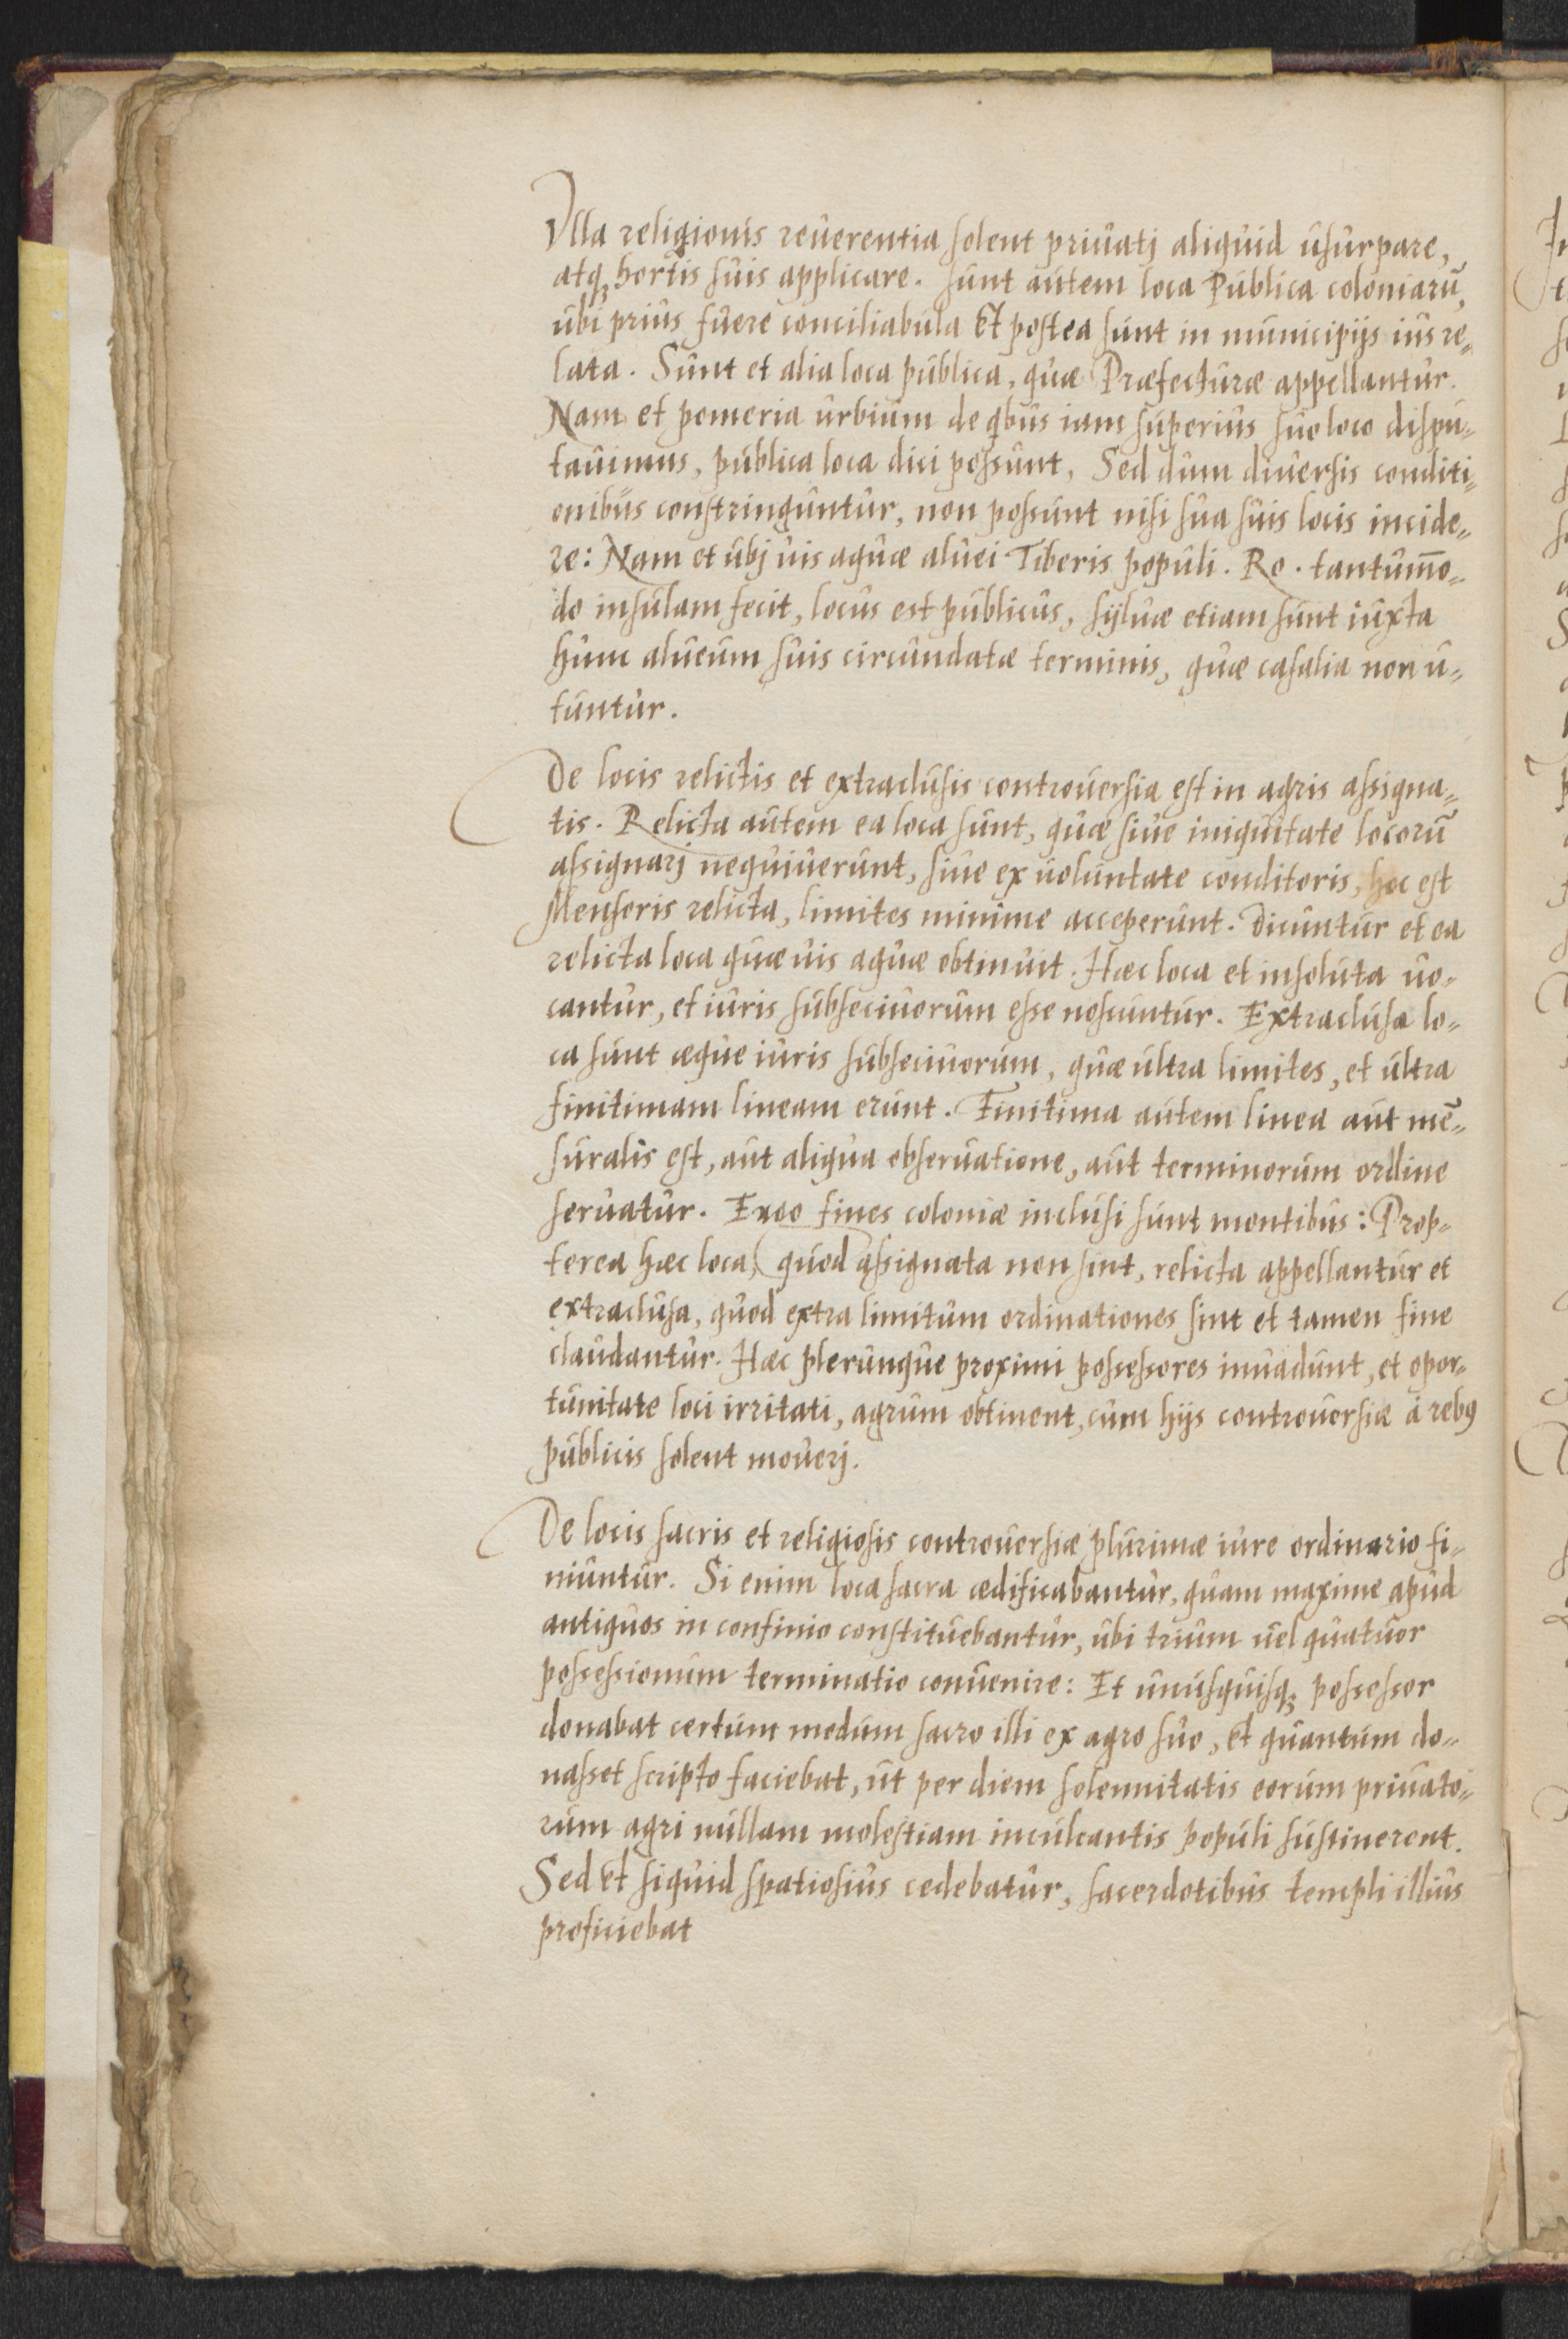 Vlla religionis reuerentia solent priuatj aliquid usurpare,
atq; hortis suis applicare. sunt autem loca Publica coloniarū,
ubi prius fuere conciliabula et postea sunt in municipijs ius re„
lata. Sunt et alia loca publica, quæ Præfecturæ appellantur.
Nam et pomeria urbium de qbus iam superius suo loco dispu„
tauimus, publica loca dici possunt, Sed dum diuersis conditi„
onibus constringuntur, non possunt nisi sua suis locis incide„
re: Nam et ubj uis aquæ aluei Tiberis populi. Ro. tantum̄o„
do insulam fecit, locus est publicus, syluæ etiam sunt iuxta
hunc alueum suis circundatæ terminis, quæ casalia non u„
tuntur.
De locis relictis et extraclusis controuersia est in agris assigna„
tis. Relicta autem ea loca sunt, quæ siue iniquitate locorū
assignarj nequiuerunt, siue ex uoluntate conditoris, hoc est
Mensoris relicta, limites minime acceperunt. Dicuntur et ea
relicta loca quæ uis aquæ obtinuit. Hæc loca et insoluta uo„
cantur, et iuris subseciuorum esse noscuntur. Extraclusa lo„
ca sunt æque iuris subseciuorum, quæ ultra limites, et ultra
finitimam lineam erunt. Finitima autem linea aut mē„
suralis est, aut aliqua obseruatione, aut terminorum ordine
seruatur. Ergo fines coloniæ inclusi sunt montibus: Prop„
terea hæc loca, quod assignata non sint, relicta appellantur et
extraclusa, quod extra limitum ordinationes sint et tamen fine
claudantur. Hæc plerunque proximi possessores inuadunt, et opor„
tunitate loci irritati, agrum obtinent, cum hijs controuersiæ á rebꝰ
publicis solent mouerj.
De locis sacris et religiosis controuersiæ plurimæ iure ordinario fi„
niuntur. Si enim loca sacra ædificabantur, quam maxime apud
antiquos in confinio constituebantur, ubi trium uel quatuor
possessionum terminatio conuenire: Et unusquisq; possessor
donabat certum modum sacro illi ex agro suo, et quantum do„
nasset scripto faciebat, ut per diem solennitatis eorum priuato„
rum agri nullam molestiam inculcantis populi sustinerent.
Sed et siquid spatiosius cedebatur, sacerdotibus templi illius
proficiebat